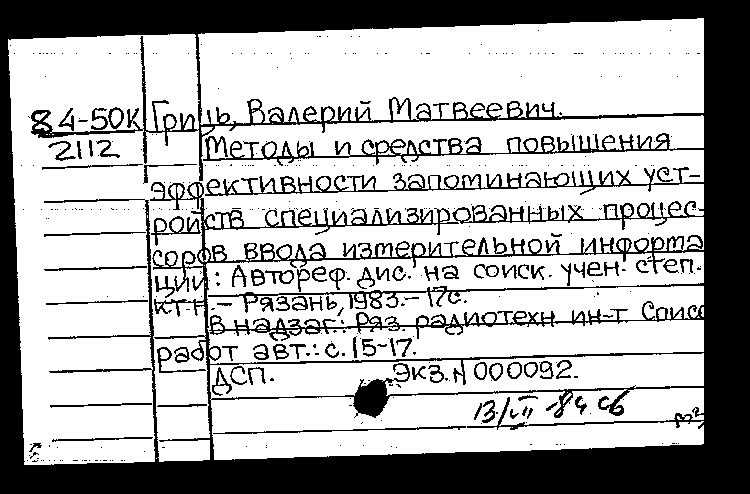 84-50К Гриць, Валерий Матвеевич.
2112 Методы и средства повышения
эффективности запоминающих уст-
ройств специализированных процес-
соров ввода измерительной информа
ции: Автореф. дис. на соиск. учен. степ.
к.т.н. - Рязань, 1983.- 17с.
В надзаг.: Ряз. радиотехн. ин-т. Список
работ авт.: с. 15-17.
ДСП. Экз. N 000092.
13/VII -84 сб